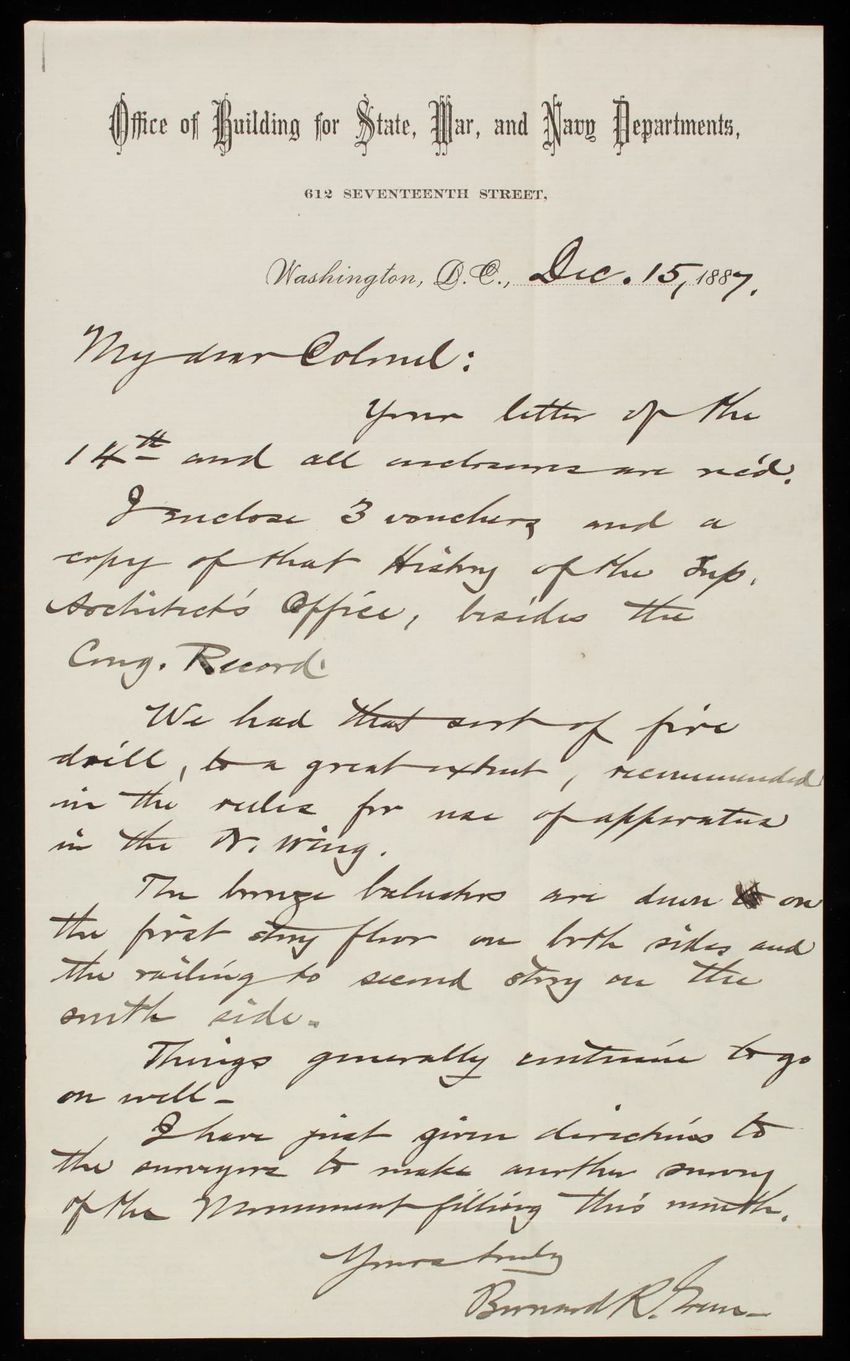 Office of Building for State, War, and Navy Departments,
612 SEVENTEENTH STREET,
Washington, D.C., Dec. 15, 1887.
My dear Colonel:
Your letter of the
14th and all enclosures are rec'd.
I enclose 3 vouchers and a
copy of that History of the Sup.
Architect's Office, besides the
Cong. Record.
We had that sort of fire
drill, to a great extent, recommended
in the rules for use of apparatus
in the N. Wing.
The bronze balusters are down on
the first story floor on both sides and
the railing to second story on the
south side.
Things generally continue to go
on well -
I have just given directions to
the surveyors to make another survey
of the Monument filling this month.
Yours truly
Bernard R. Green